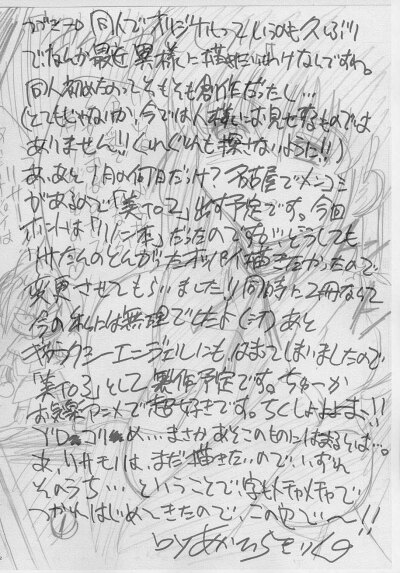 同人でオリジナルっていうのも久しぶり
でなんか最近異様に描きたいわけなんですわ。
同人初めたのってそもそも創作だったし…
(とてもじゃないが、今では人様にお見せするものでは
ありません!!くれぐれも探さないように!!)
あ、あと1月の何日だっけ?名古屋でメンコミ
があるので「美to2」出す予定です。今回
ホントは「リハン本」だったのですが、どうしても
とんがったオッパイ描きたかったので
変更させてもらいました!!同時に2冊なんて
今の私には無理でしたよ あと
エンジェルにも、はまってしまいましたので
「美to3」として製作予定です。ちゅーか
お気楽アニメで超好きです。ちくしょおおま〜!!
め…まさかあそこのものにはまるとは…。
あ、リサモノは、まだ描きたいので、いずれ
そのうち…ということで字もメチャメチャで
つかれはじめてきたので、この辺で〜!!